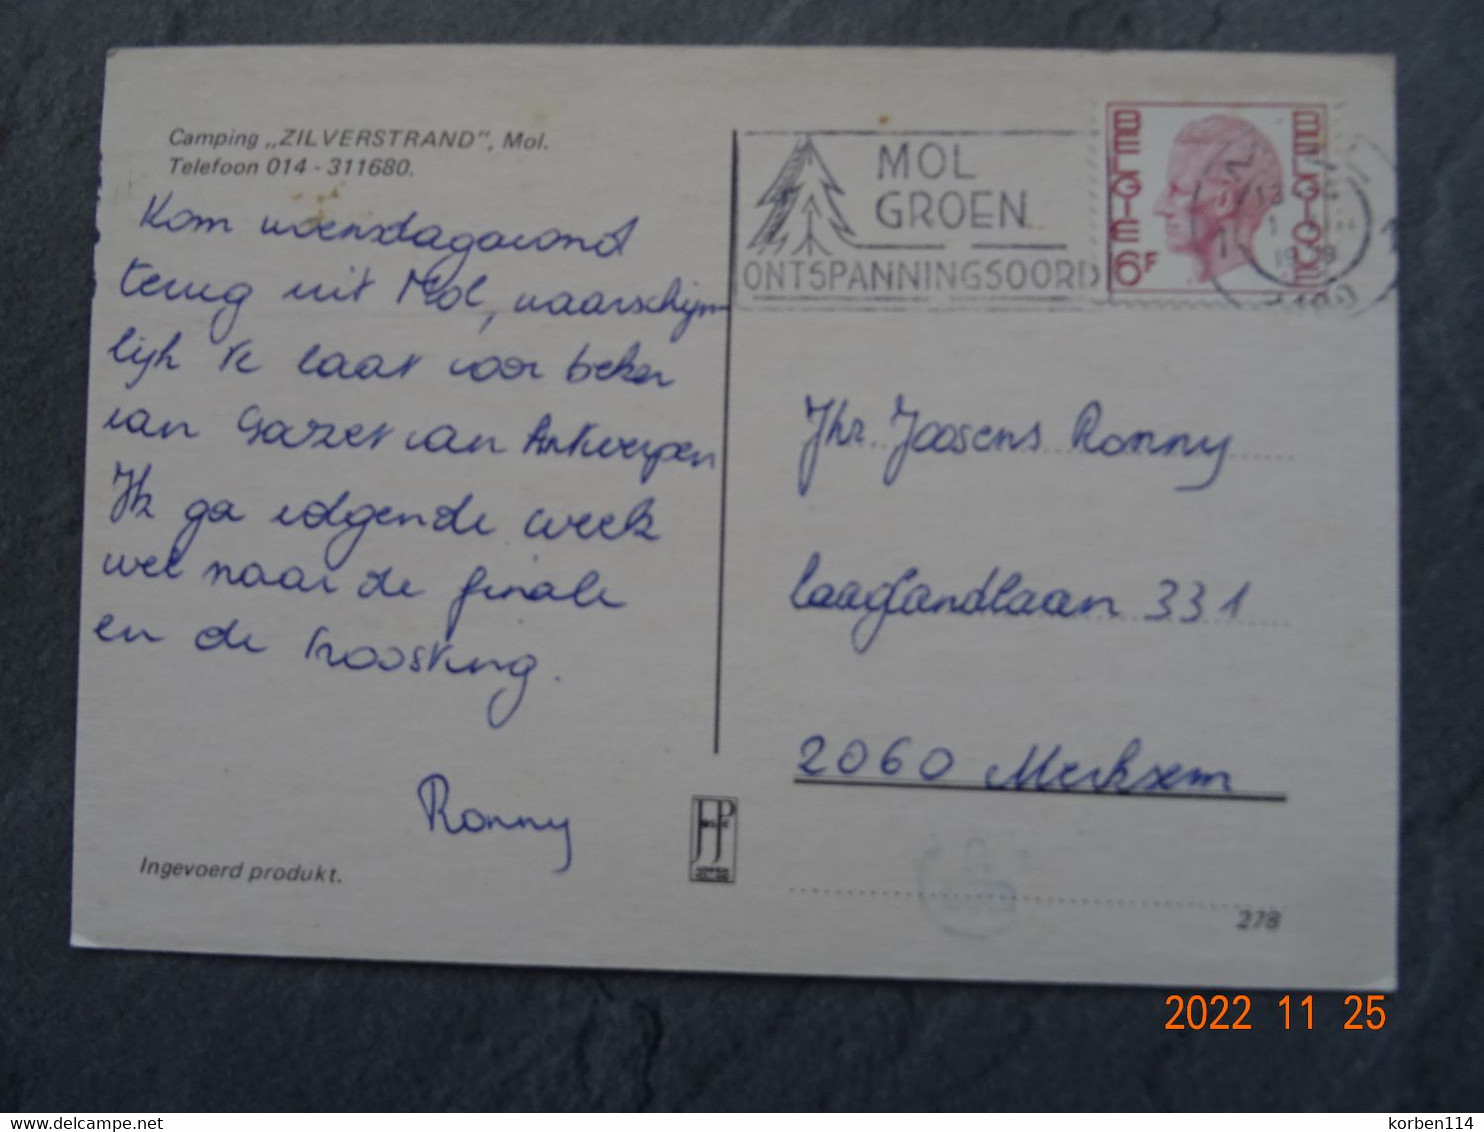 Camping „ZILVERSTRAND”, Mol.
Telefoon 014 - 311680.
Kom woensdagavond
terug uit Mol, waarschijn-
lijk te laat voor beker
van Gazet van Antwerpen
Ik ga volgende week
wel naar de finale
en de troosting.
Ronny
Ingevoerd produkt.
MOL
GROEN
ONTSPANNINGSOORD
BELGIE
BELGIQUE
6F
Jhr. Joosens Ronny
Laaglandlaan 331
2060 Merksem
278
2022 11 25
delcampe.net
korben114